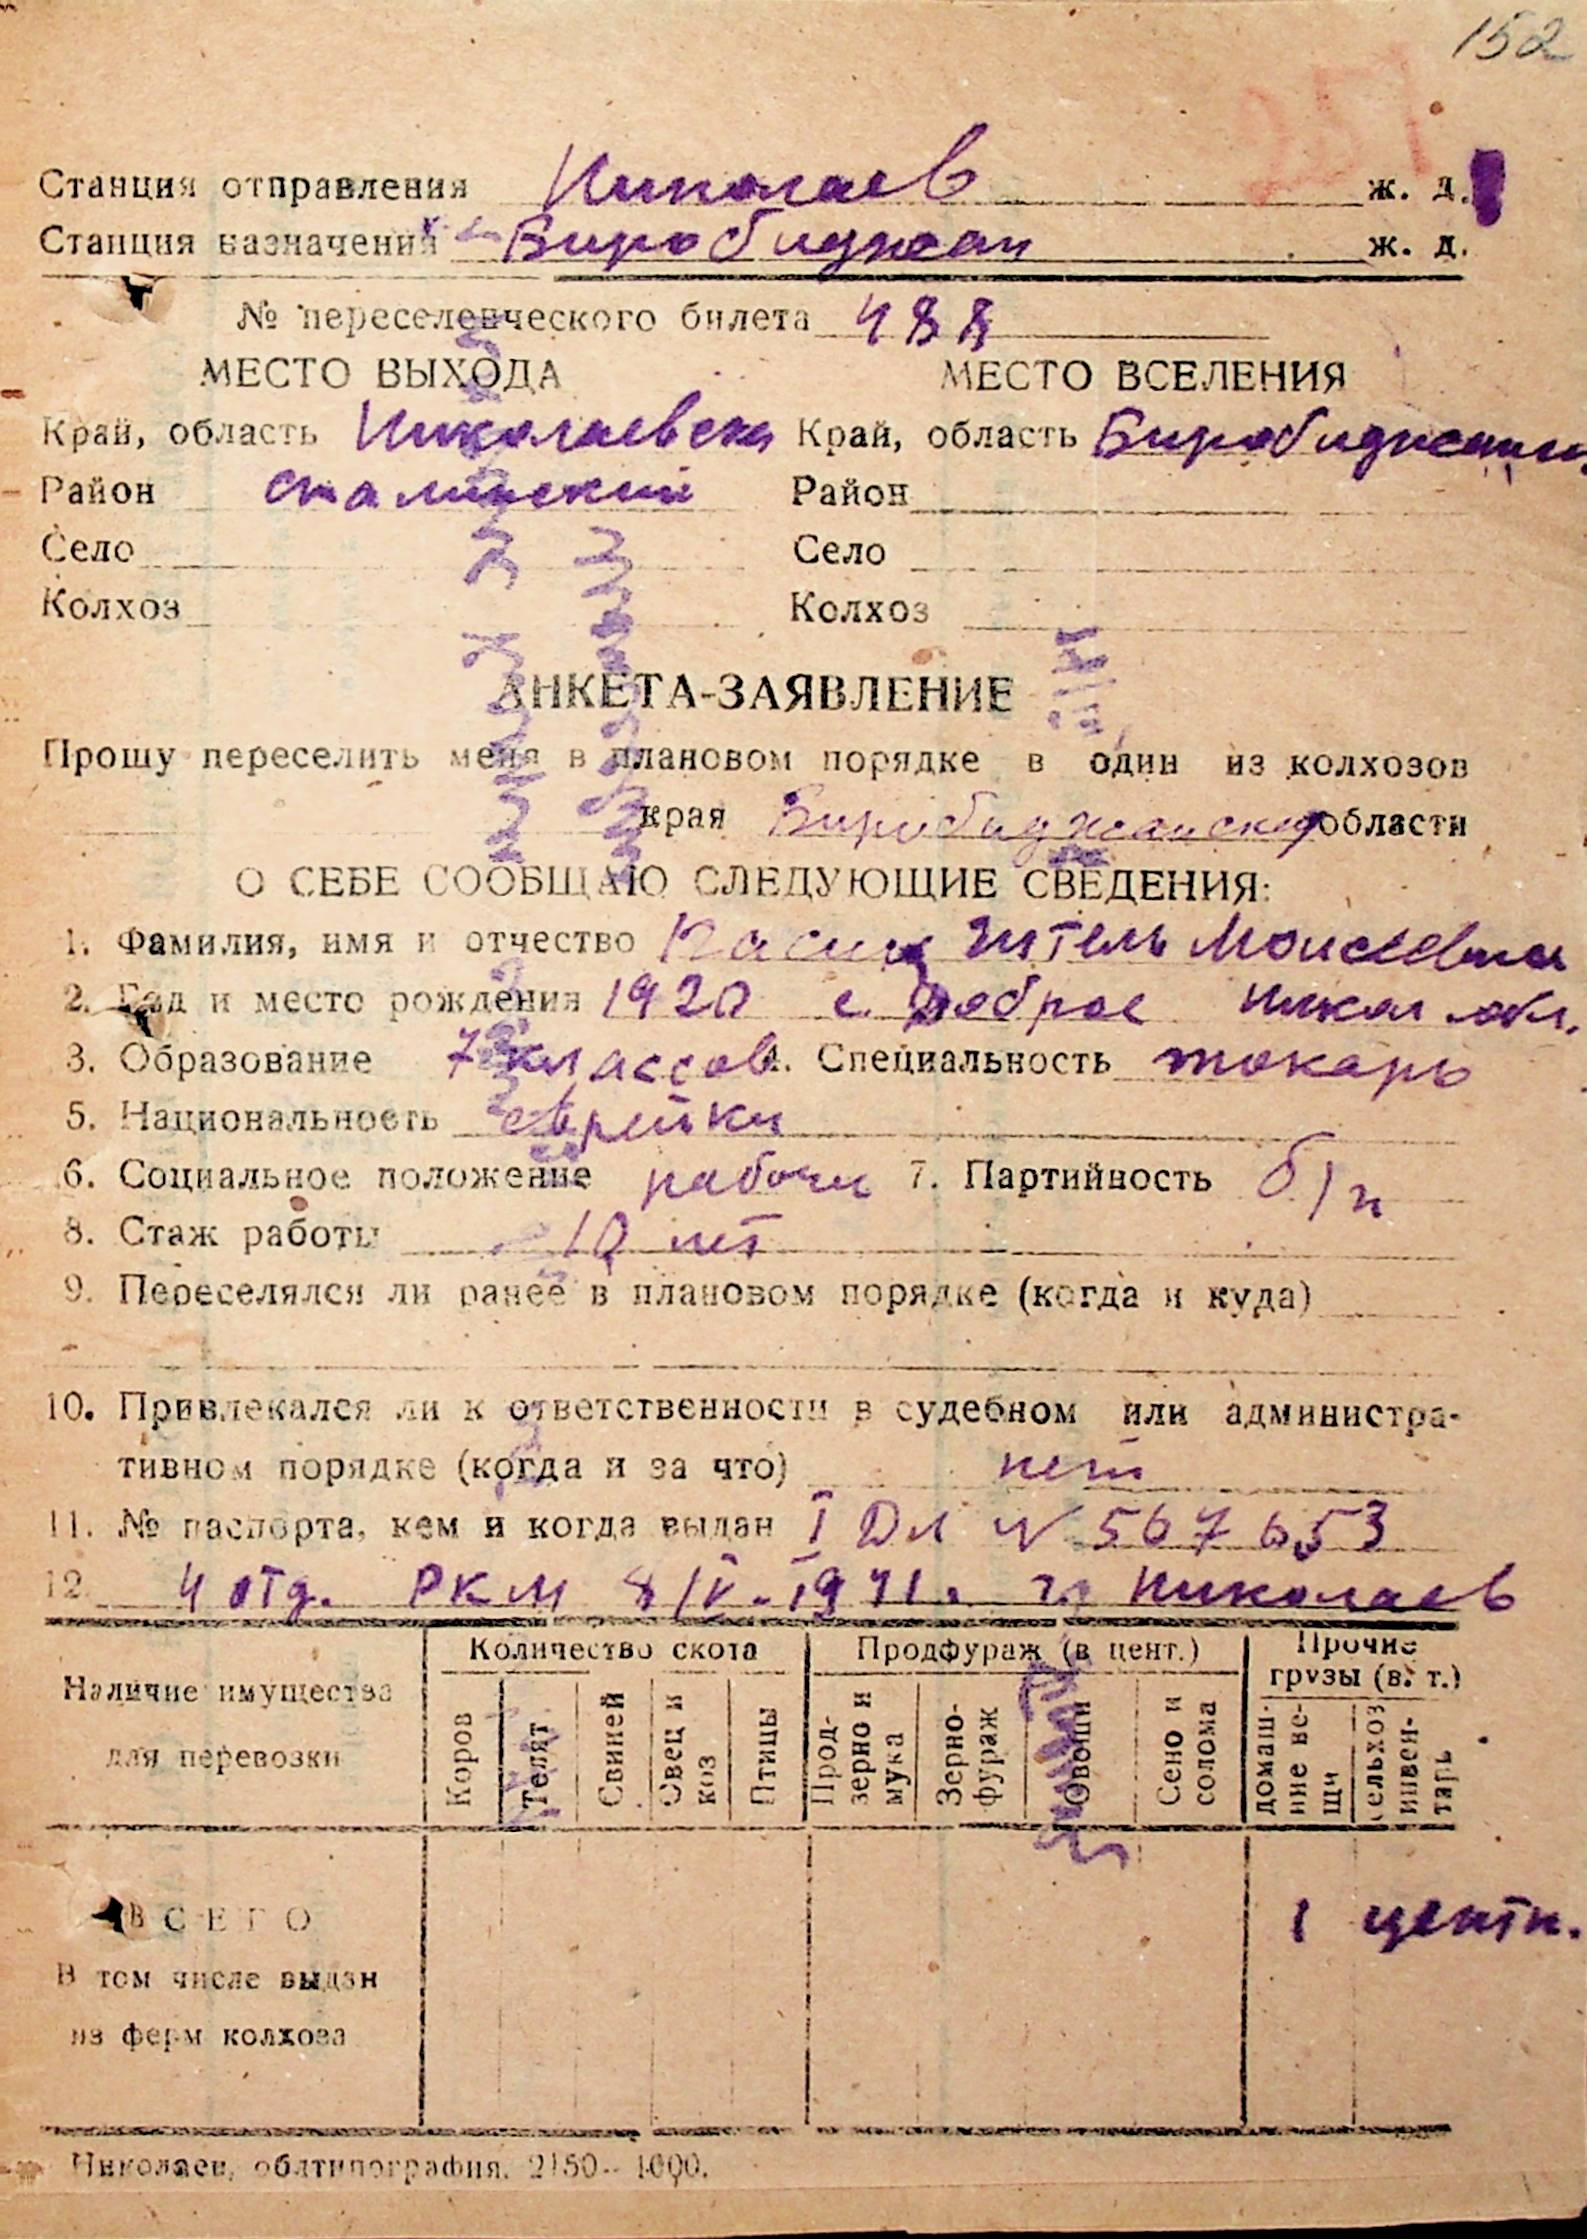 152
Станция отправления Николаев ж. д.
Станция назначения Биробиджан ж. д.
№ переселенческого билета 488
МЕСТО ВЫХОДА МЕСТО ВСЕЛЕНИЯ
Край, область Николаевская Край, область Биробиджан
Район сталинский Район
Село Село
Колхоз Колхоз
АНКЕТА-ЗАЯВЛЕНИЕ
Прошу переселить меня в плановом порядке в один из колхозов
края Биробиджанской области
О СЕБЕ СООБЩАЮ СЛЕДУЮЩИЕ СВЕДЕНИЯ:
1. Фамилия, имя и отчество Моисеевна
2. Год и место рождения 1920 с. Доброе Никол обл.
3. Образование 7 классов 4. Специальность токарь
5. Национальность еврейка
6. Социальное положение рабочи 7. Партийность б/п
8. Стаж работы 10 лет
9. Переселялся ли ранее в плановом порядке (когда и куда)
10. Привлекался ли к ответственности в судебном или администра-
тивном порядке (когда и за что) нет
11. № паспорта, кем и когда выдан I Дл N 567653
12. 4 отд. РКМ 8/IV-1941. гл Николаев
Наличие имущества для перевозки
Количество скота
Продфураж (в цент.)
Прочие грузы (в. т.)
Коров
Телят
Свиней
Овец и коз
Птицы
Прод-зерно и мука
Зерно-фураж
Овощи
Сено и солома
домаш-ние ве-щи
сельхоз инвен-тарь
ВСЕГО 1 центн.
В том числе выдан
из ферм колхоза
Николаев, облтипография. 2150—1000.